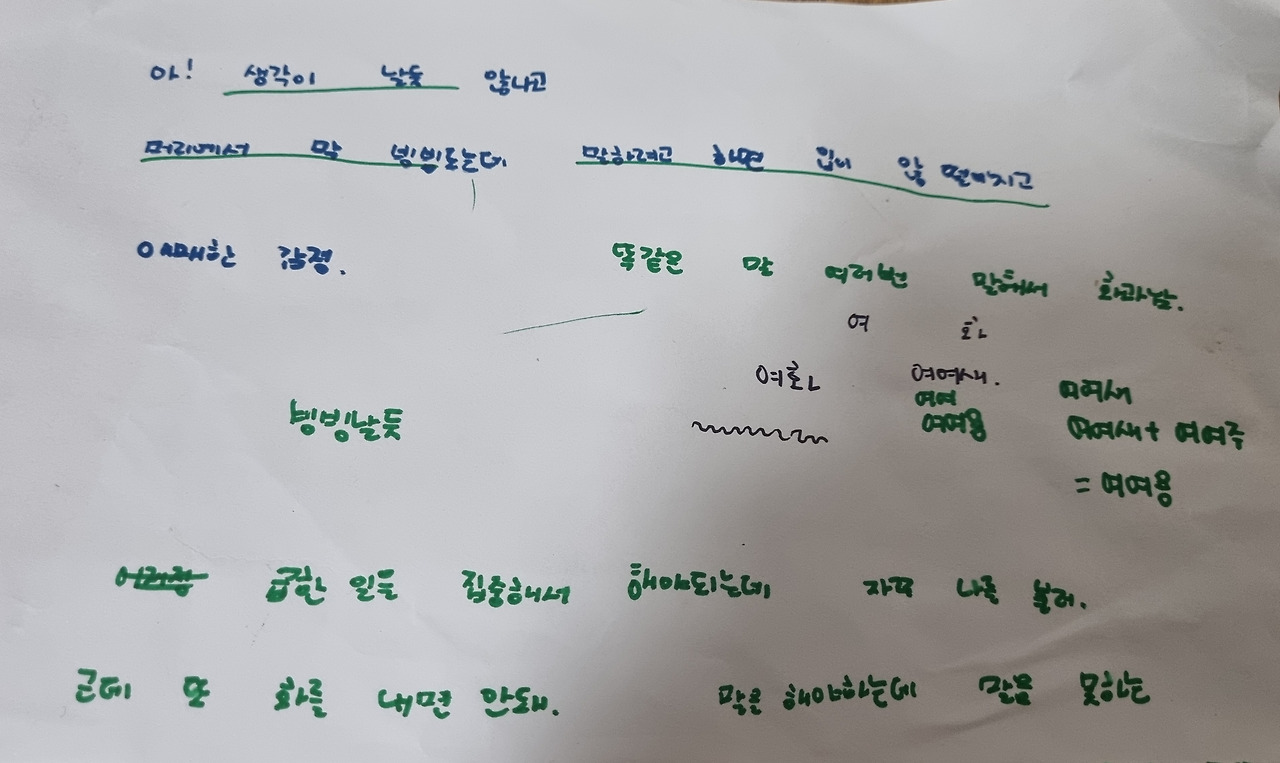 아! 생각이 날듯 않나고
머리에서 막 빙빙도는데 말하려고 하면 입이 않 떨어지고
애매한 감정. 똑같은 말 여러번 말해서 화라남.
여 화
여화 여여새.
여여 여여새
빙빙날듯 여여용 여여새+ 여여주
= 여여용
급한 일들 집중해서 해야되는데 자꾸 나를 불러.
근데 또 화를 내면 안돼. 막은 해야하는데 말을 못하는